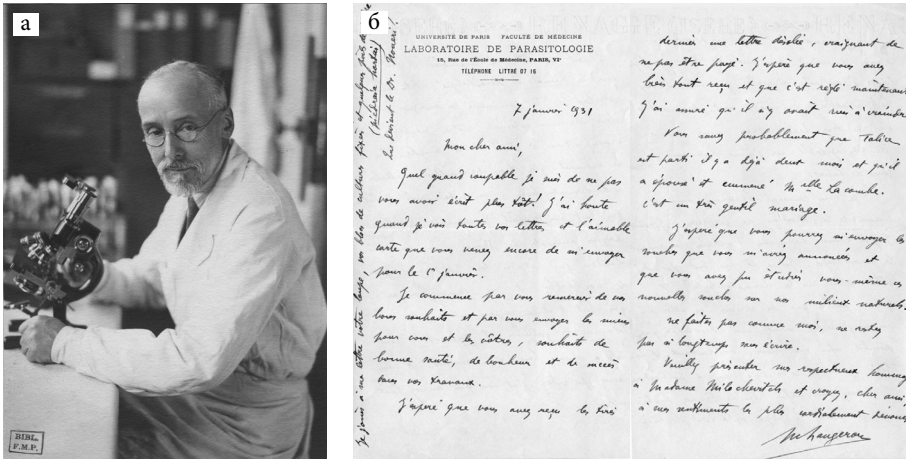 а
BIBL.
F.M.P.
б
UNIVERSITÉ DE PARIS FACULTÉ DE MÉDECINE
LABORATOIRE DE PARASITOLOGIE
15, Rue de l'École de Médecine, PARIS, VIe
TÉLÉPHONE LITTRÉ 07 16
7 janvier 1931
Mon cher ami,
Quel grand coupable je suis de ne pas
vous avoir écrit plus tôt! J'ai honte
quand je vois toutes vos lettres et l'aimable
carte que vous venez encore de m'envoyer
pour le 1er janvier.
Je commence par vous remercier de vos
bons souhaits et par vous envoyer les miens
pour vous et les vôtres, souhaits de
bonne santé, de bonheur et de succès
dans vos travaux.
J'espère que vous avez reçu les tirés
Je joins à ma lettre votre loupe, vos blocs de culture fixés et quelques poils de
(piedraia hortai)
dernier une lettre désolée, craignant de
ne pas être payé. J'espère que vous avez
bien tout reçu et que c'est réglé maintenant.
J'ai assuré qu'il n'y avait rien à craindre.
Vous savez probablement que Talice
est parti il y a déjà deux mois et qu'il
a épousé et emmené Melle Lacombe.
C'est un très gentil mariage.
J'espère que vous pourrez m'envoyer les
souches que vous m'avez annoncées et
que vous avez pu étudier vous-même ces
nouvelles souches sur nos milieux naturels.
Ne faites pas comme moi, ne restez
pas si longtemps sans écrire.
Veuillez présenter mes respectueux hommages
à Madame Milochevitch et croyez, cher ami,
à mes sentiments les plus cordialement dévoués
M Langeron